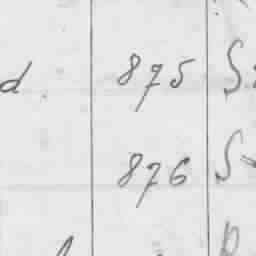 d 875 S
876 S